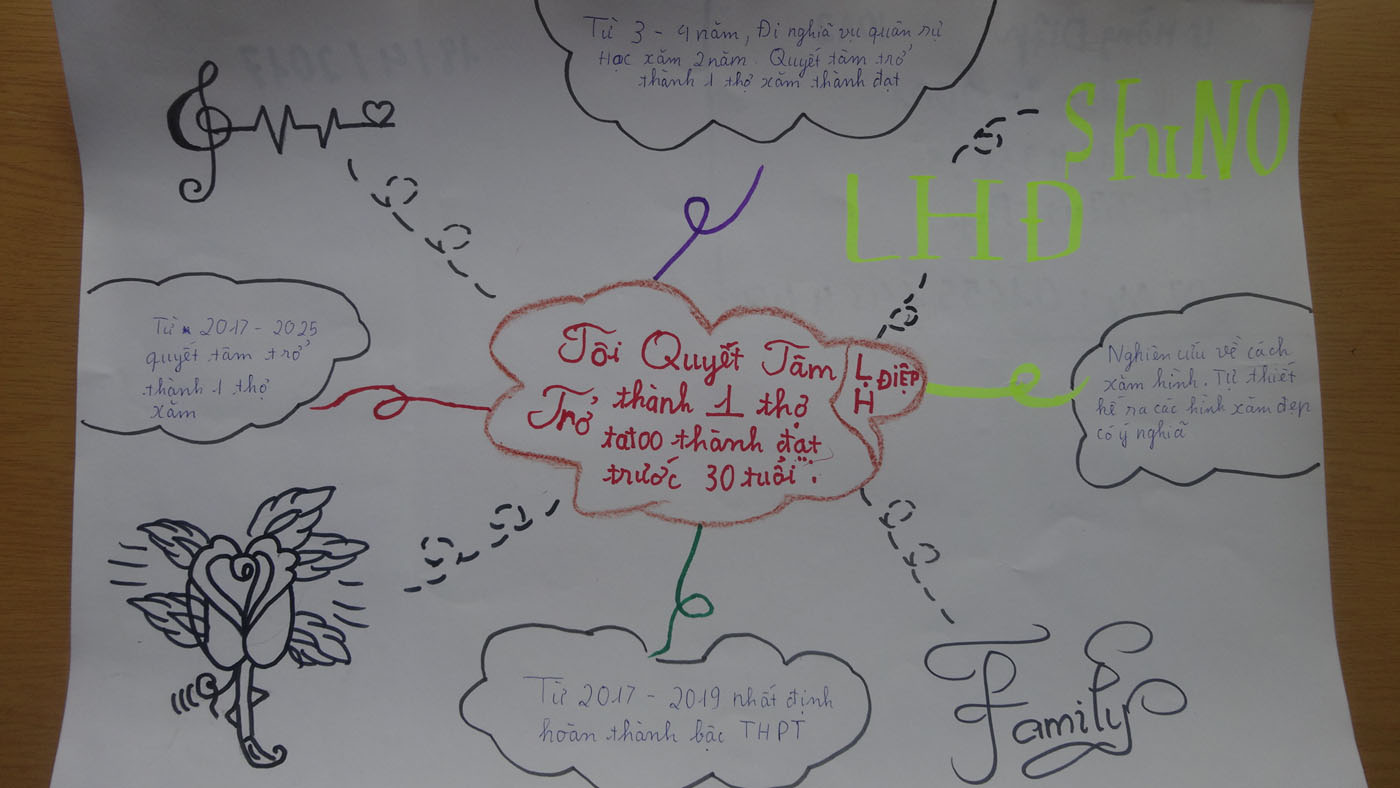 Từ 3 - 4 năm, Đi nghĩa vụ quân sự
Học xăm 2 năm. Quyết tâm trở
thành 1 thợ xăm thành đạt
ShiNO
LHĐ
Từ 2017 - 2025
quyết tâm trở
thành 1 thợ
xăm
Tôi Quyết Tâm
Trở thành 1 thợ
tatoo thành đạt
trước 30 tuổi.
L.H ĐIỆP
Nghiên cứu về cách
xăm hình. Tự thiết
kế ra các hình xăm đẹp
có ý nghĩa
Từ 2017 - 2019 nhất định
hoàn thành bậc THPT
Family